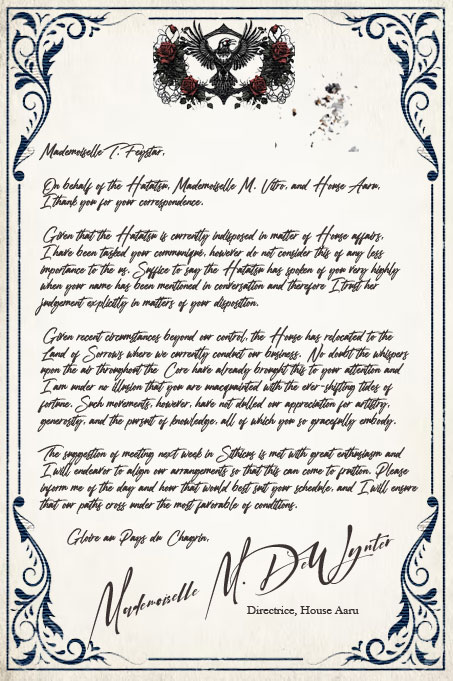 Mademoiselle T. Feystar,
On behalf of the Hatatsu, Mademoiselle M. Vitro, and House Aaru,
I thank you for your correspondence.
Given that the Hatatsu is currently indisposed in matter of House affairs,
I have been tasked your communique, however do not consider this of any less
importance to the us. Suffice to say the Hatatsu has spoken of you very highly
when your name has been mentioned in conversation and therefore I trust her
judgement explicitly in matters of your disposition.
Given recent circumstances beyond our control, the House has relocated to the
Land of Sorrows where we currently conduct our business. No doubt the whispers
upon the air throughout the Core have already brought this to your attention and
I am under no illusion that you are unacquainted with the ever-shifting tides of
fortune. Such movements, however, have not dulled our appreciation for artistry,
generosity, and the pursuit of knowledge, all of which you so gracefully embody.
The suggestion of meeting next week in Sithicus is met with great enthusiasm and
I will endeavor to align our arrangements so that this can come to fruition. Please
inform me of the day and hour that would best suit your schedule, and I will ensure
that our paths cross under the most favorable of conditions.
Gloire au Pays du Chagrin,
Mademoiselle M. DeWynter
Directrice, House Aaru